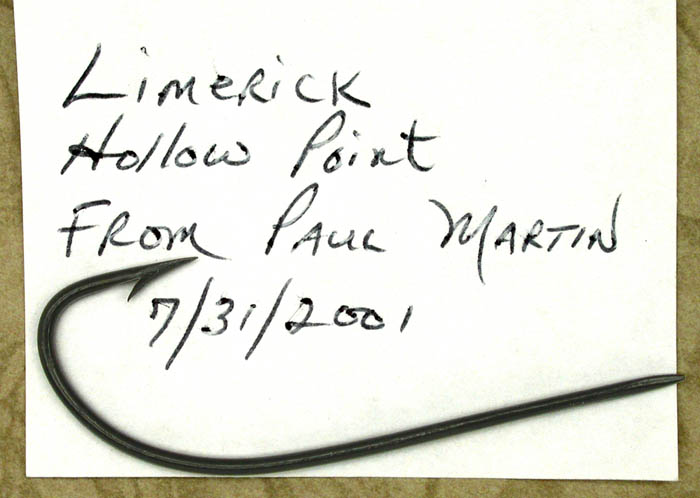 Limerick
Hollow Point
From Paul Martin
7/31/2001